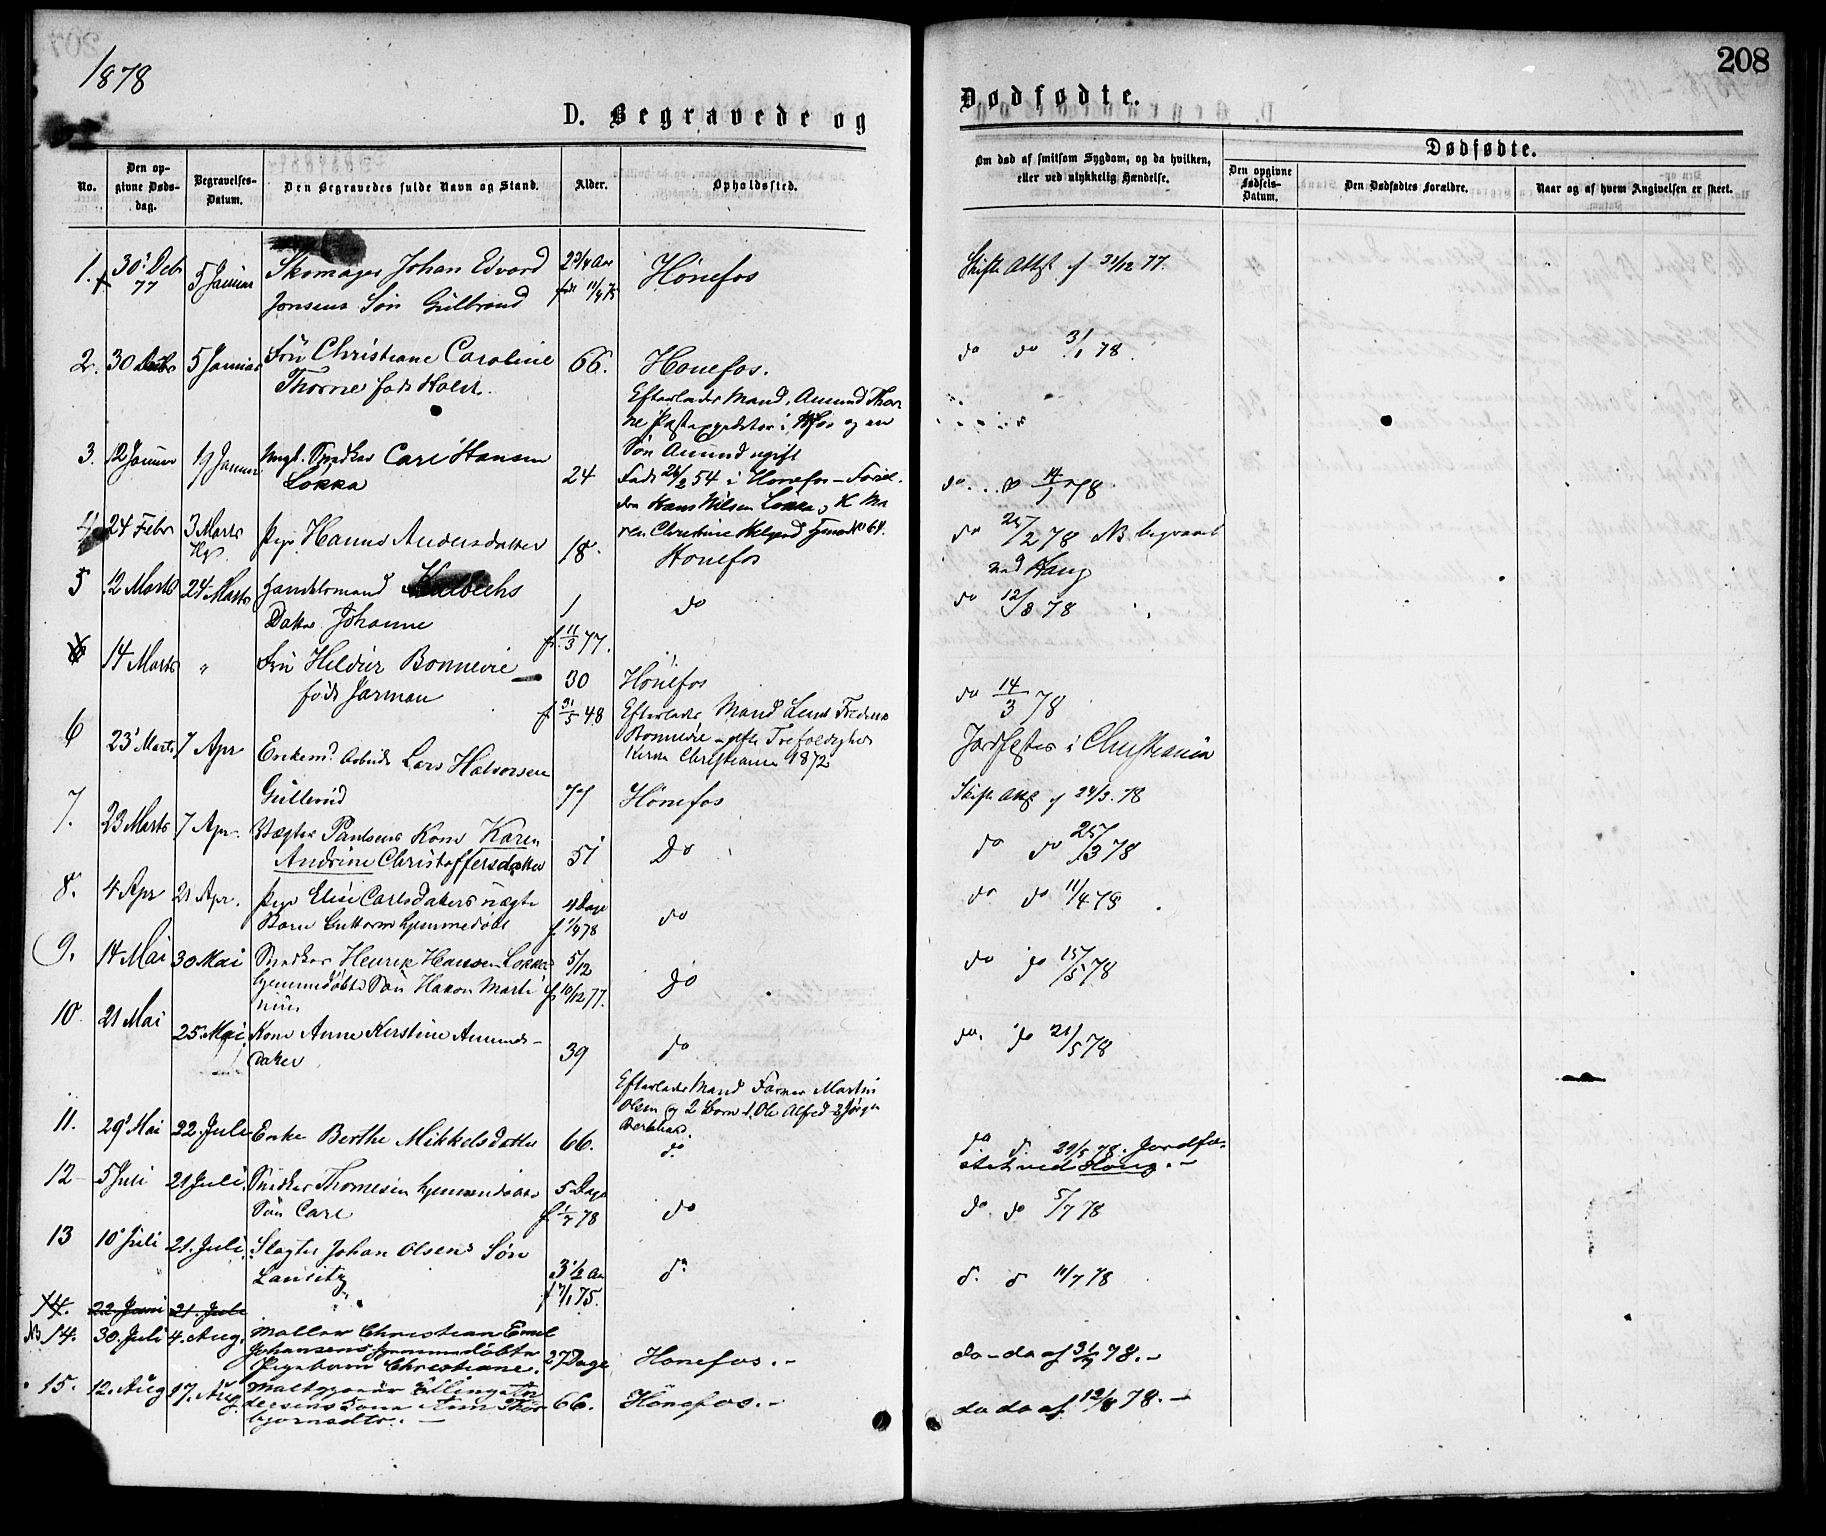 208
1878
D. Begravede og
Dødfødte.
No.
Den op-
givne Døds-
dag.
Begravelses-
Datum.
Den Begravedes fulde Navn og Stand.
Alder.
Opholdssted.
Om død af smitsom Sygdom, og da hvilken,
eller ved ulykkelig Hændelse.
Dødfødte.
Den opgivne
Fødsels-
Datum.
Den Dødfødtes Forældre.
Naar og af hvem Angivelsen er skeet.
1. 30' Debr 77 5 Januar Skomager Johan Edvard
Jonsens Søn Gulbrand
2 3/4 Aar
Hønefos
Skifte Attest af 31/12 77.
2. 30 Debr 5 Januar Fru Christiane Caroline
Thorne født Holst.
66. Hønefos.
do do 3/1 78
Efterlader Mand, Amund Thor
ne Postexpeditør i Hfos og en
Søn Amund ugift
3. 12 Januar 19 Januar Ungk. Snedker Carl Hansen
Løkka
24
Født 26/2 54 i Hønefos - Foræl-
dre Hans Nilsen Løkka og K Ma
ren Christine
do 14/1 78
4 24 Febr 3 Marts Pige Hanna Andersdatter
18. Hønefos
do 25/2 78 NB begravet
ved Haug
5 12 Marts 24 Marts Handelsmand
Datter Johanne
1
f. 11/3 77.
do
do 12/3 78
14 Marts " Fru Hildur Bonnevie
født Jarman
30
f 31/5 48
Hønefos
do 14/3 78
Efterlader Mand
Bonnevie - gifte Trefoldigheds
Kirke Christiania 1872
Jordfæstes i Christiania
6 23' Marts 7 Apr Enkem. Arbeids Lars Halvorsen
Gullerud
77 Hønefos
Skifte Att af 24/3. 78
7. 23 Marts 7 Apr. Vægter Paulsens Kone Karen
Andrine Christoffersdatter
51 Do
do do 25/3 78
8. 4 Apr 21 Apr. Pige Elise Carlsdatters uægte
Barn Guttorm hjemmedøbt
4 Dage
f. 1/4 78
do
do do 11/4 78
9. 14 Mai 30 Mai Snedker Henrik Hansen Løkkes
hjemmedøbte Søn Hakon Marti
nius
5/12
f. 10/12 77.
do
do do 15/5 78
10. 21 Mai 25 Mai. Kone Anne Kirstine Amunds-
datter
39 do
do. do 21/5 78
Efterlader Mand Farver Martin
Olsen og 2 Børn 1. Ole Alfred 2 Jørgen
Bernhard.
11. 29' Mai 22. Juli Enke Berthe Mikkelsdatter
66. do
do d. 29/5 78. Jordfæ-
stet ved Haug. -
12 5 Juli 21 Juli. Snedker Thomesen hjemmedøbte
Søn Carl
5 Dage
f. 1/7 78
do
do. do 5/7 78
13 10' Juli 21. Juli. Slagter Johan Olsens Søn
Lauritz
3 1/2 Aar
f 7/1 75.
do
d. d 11/7 78
14. 22 Juni 21. Juli
NB 14. 30. Juli 4. Aug. Møller Christian Emil
Johansens hjemmedøbte
Pigebarn Christiane.
27 Dage Hønefos. -
do - do af 31/7 78. -
15. 12. Aug 17. Aug. Maltgjører Ellings
Kone Ann Thor
bjørnsdtr. -
66. Hønefos. -
do do af 12/8 78. -